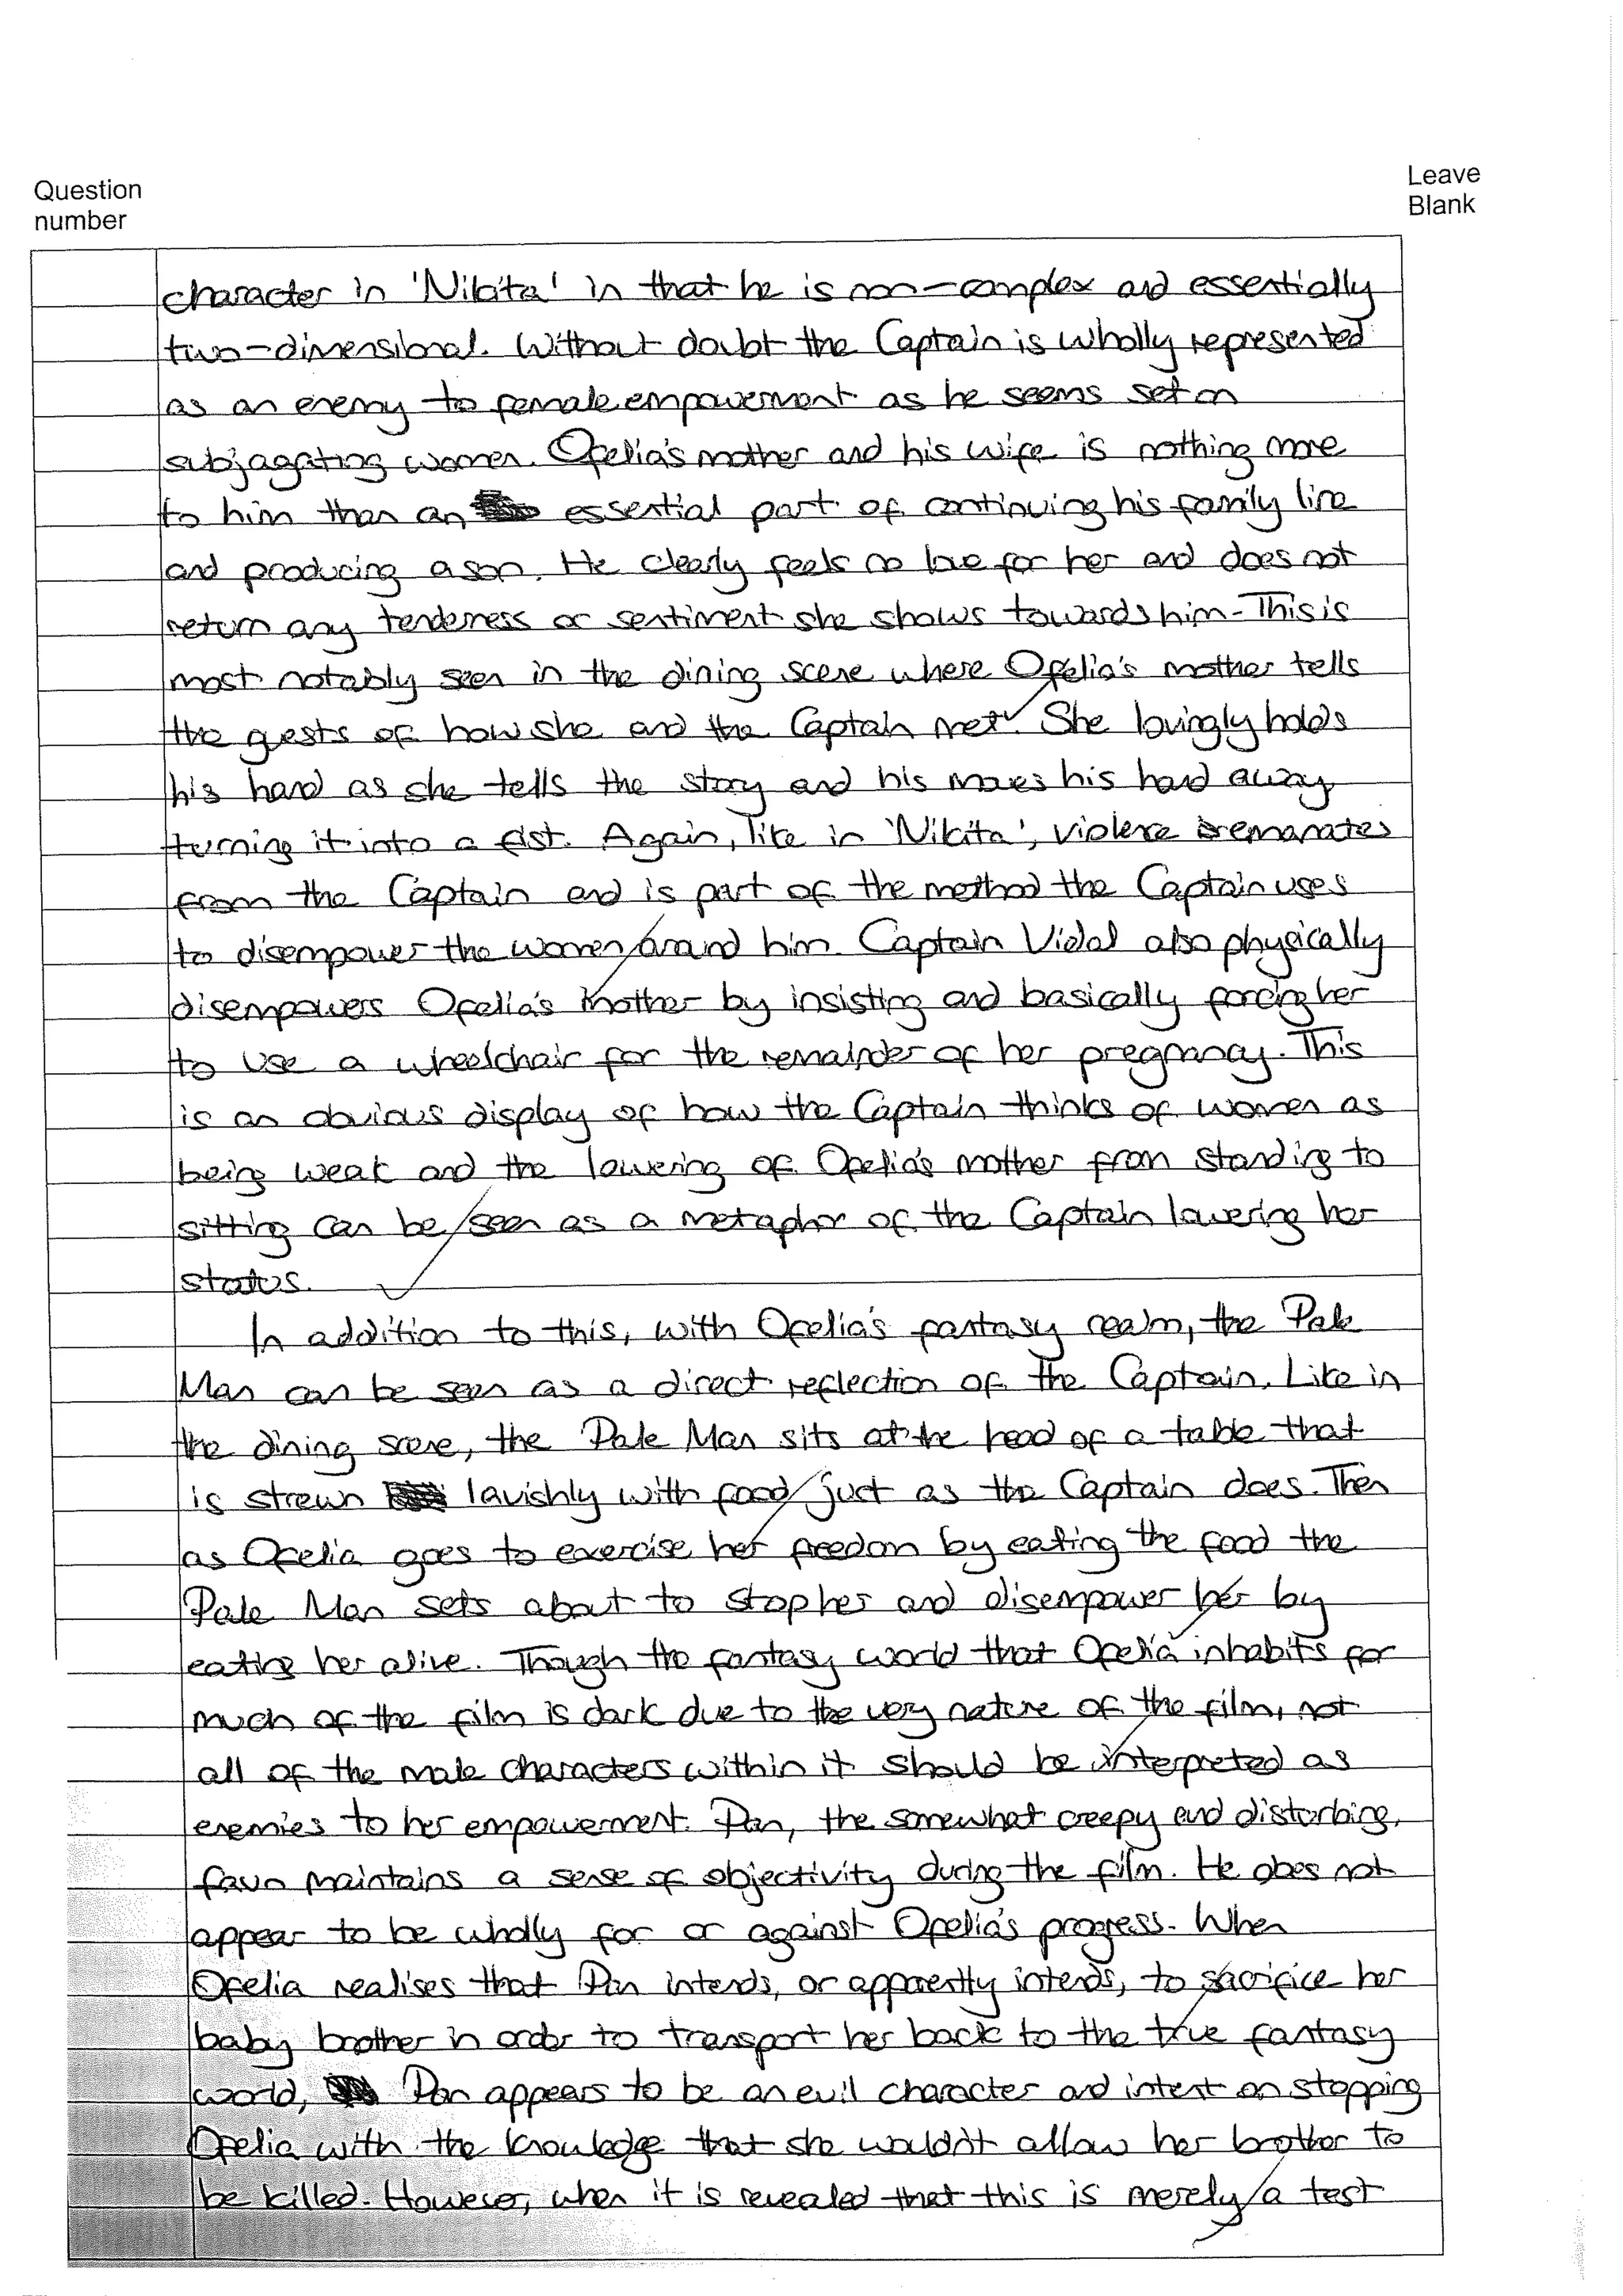 Question
number
Leave
Blank
character in 'Nikita' in that he is non-complex and essentially
two-dimensional. Without doubt the Captain is wholly represented
as an enemy to female empowerment as he seems set on
subjagating women. Ofelia's mother and his wife is nothing more
to him than an essential part of continuing his family line
and producing a son. He clearly feels no love for her and does not
return any tenderness or sentiment she shows towards him - This is
most notably seen in the dining scene where Ofelia's mother tells
the guests of how she and the Captain met. She lovingly holds
his hand as she tells the story and his moves his hand away
turning it into a fist. Again, like in 'Nikita', violence emanates
from the Captain and is part of the method the Captain uses
to disempower the women around him. Captain Vidal also physically
disempowers Ofelia's mother by insisting and basically forcing her
to use a wheelchair for the remainder of her pregnancy. This
is an obvious display of how the Captain thinks of women as
being weak and the lowering of Ofelia's mother from standing to
sitting can be seen as a metaphor of the Captain lowering her
status.
In addition to this, with Ofelia's fantasy realm, the Pale
Man can be seen as a direct reflection of the Captain. Like in
the dining scene, the Pale Man sits at the head of a table that
is strewn lavishly with food just as the Captain does. Then
as Ofelia goes to exercise her freedom by eating the food the
Pale Man sets about to stop her and disempower her by
eating her alive. Though the fantasy world that Ofelia inhabits for
much of the film is dark due to the very nature of the film, not
all of the male characters within it should be interpreted as
enemies to her empowerment. Pan, the somewhat creepy and disturbing,
faun maintains a sense of objectivity during the film. He does not
appear to be wholly for or against Ofelia's progress. When
Ofelia realises that Pan intends, or apparently intends, to sacrifice her
baby brother in order to transport her back to the true fantasy
world, Pan appears to be an evil character and intent on stopping
Ofelia with the knowledge that she wouldn't allow her brother to
be killed. However, when it is revealed that this is merely a test